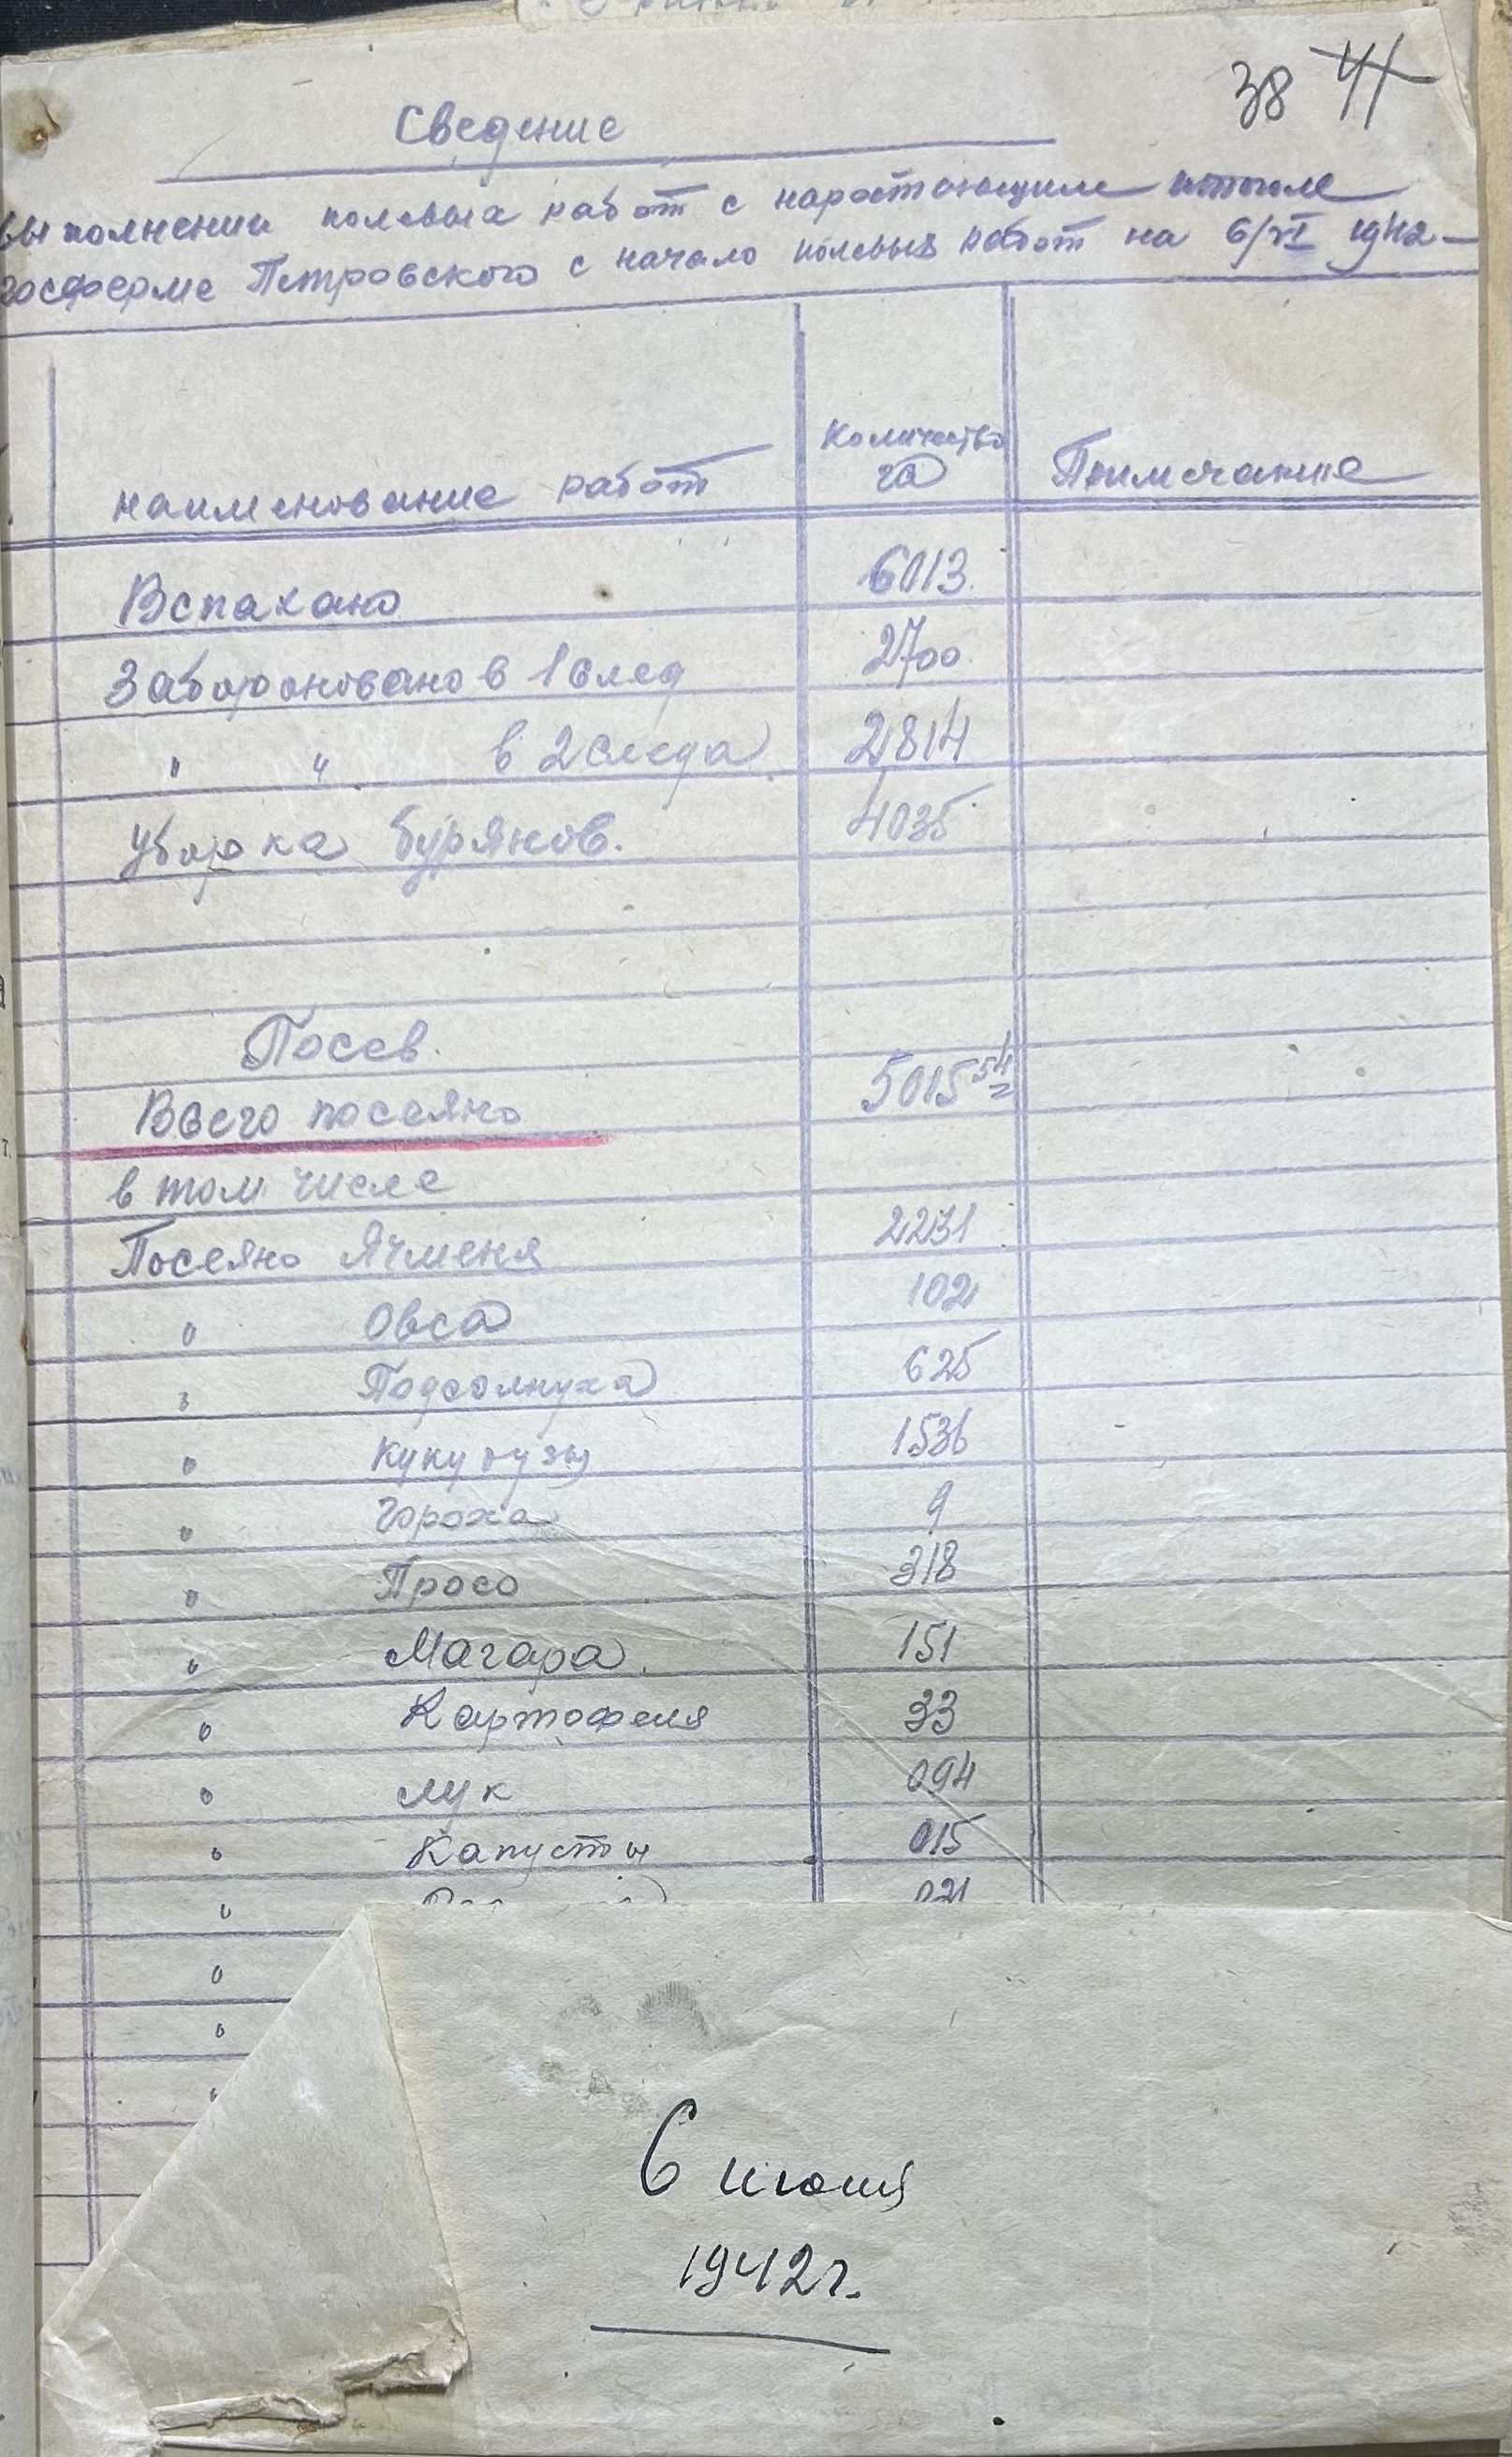 38 41
Сведение
выполнении полевых работ с наростающим итогом
госферме Петровского с начало полевых работ на 6/VI 1942
наименование работ
Количество
га
Примечание
Вспахано 6013.
Забороновано в 1 след 2700.
" " в 2 следа 2814
Уборка бурянов. 4035
Посев.
Всего посеяно 5015 54
в том числе
Посеяно Ячменя 2231
" Овса 102
" Подсолнуха 625
" Кукурузы 1536
" Гороха 9
" Просо 318
" Магара. 151
" Картофеля 33
" Лук 094
" Капусты 015
" 021
"
"
"
6 июня
1942 г.